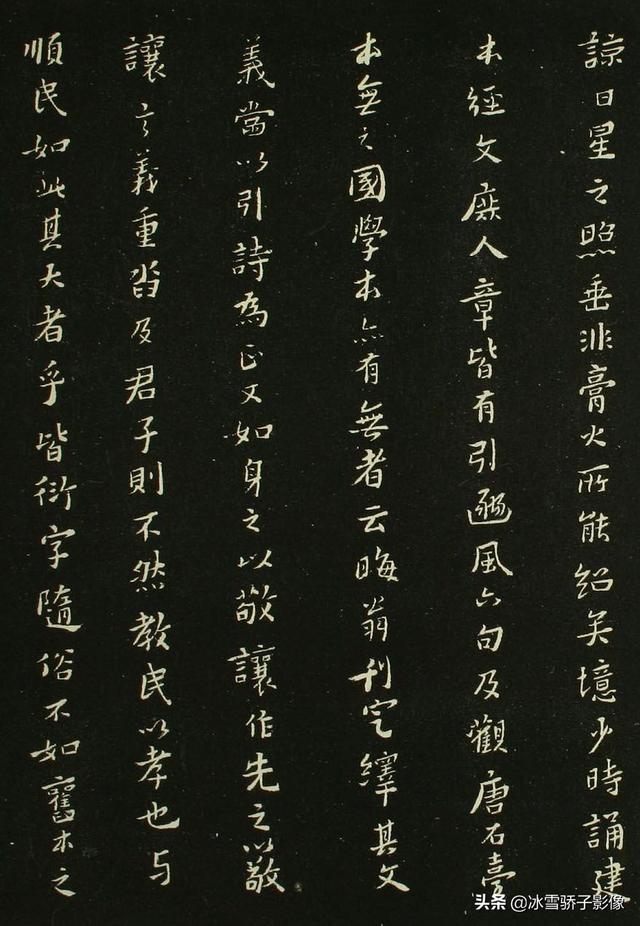 諒日星之照垂非膏火所能紹矣境少時誦建
本經文庶人章皆有引豳風六句及觀唐石臺
本無之國學本亦有無者云晦翁刊定繹其文
義當以引詩為正又如身之以敬讓作先之以敬
讓言義重沓及君子則不然教民以孝也与
順民如此其大者乎皆衍字隨俗不如舊本之
头条 @冰雪骄子影像